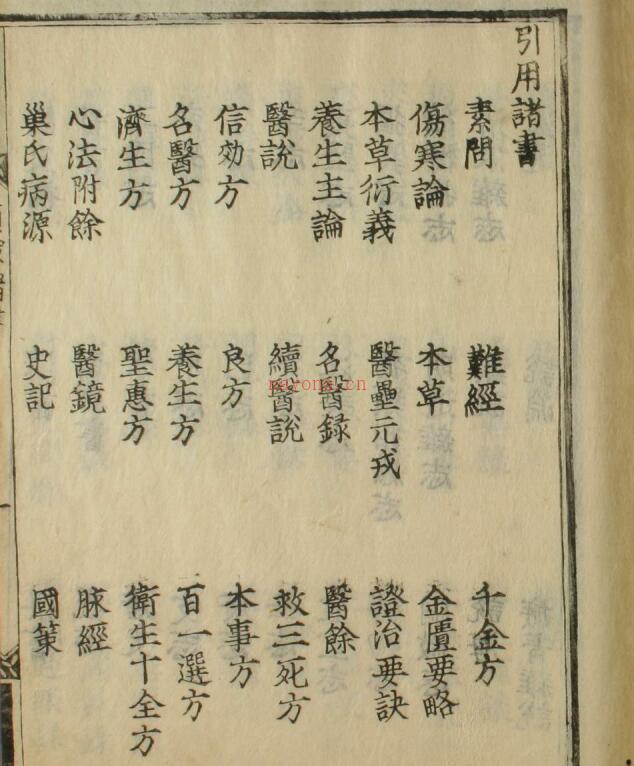 引用諸書
素問 難經 千金方
傷寒論 本草 金匱要略
本草衍義 醫壘元戎 證治要訣
養生主論 名醫録 醫餘
醫說 續醫說 救三死方
信効方 良方 本事方
名醫方 養生方 百一選方
濟生方 聖惠方 衛生十全方
心法附餘 醫鏡 脉經
巢氏病源 史記 國策
nayona.cn